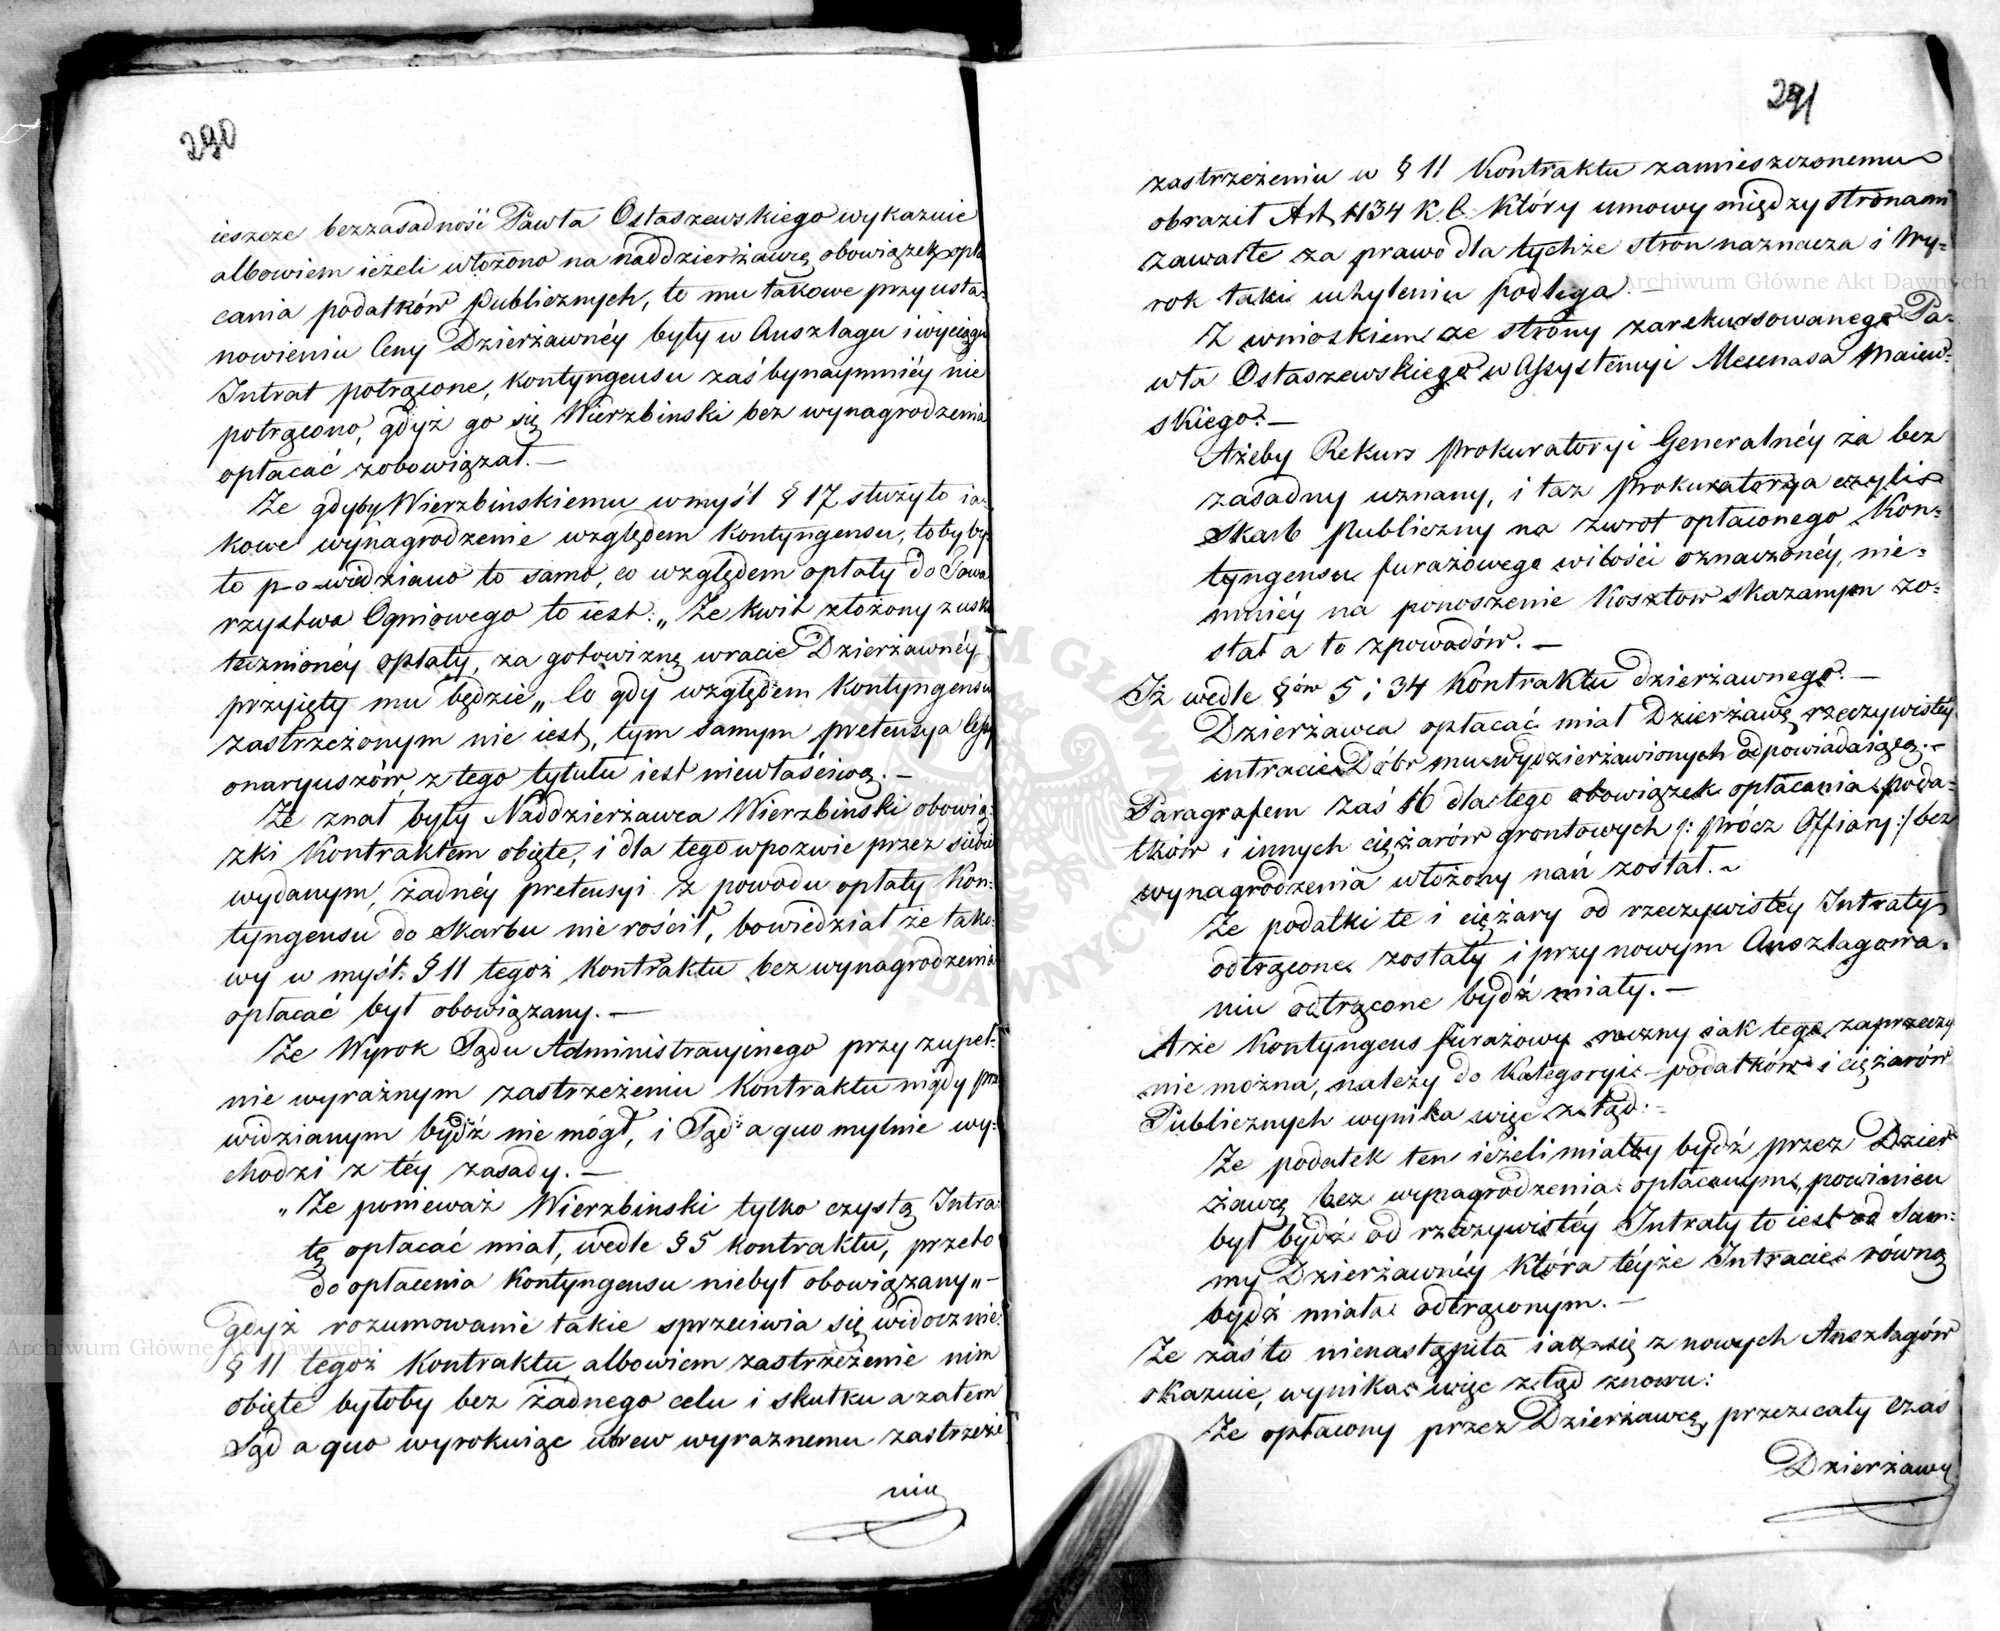 290
ieszcze bezzasadność Pawła Ostaszewskiego wykazuie
albowiem ieżeli włożono na naddzierżawcę obowiązek opła
cania podatków publicznych, to mu takowe przy usta-
nowieniu Ceny Dzierżawnéy były w Anszlagu i wyciągu
Intrat potrącone, kontyngensu zaś bynaymniéy nie
potrącono, gdyż go się Wierzbinski bez wynagrodzenia
opłacać zobowiązał.—
Że gdyby Wierzbinskiemu w myśl § 17 służyło ia-
kowe wynagrodzenie względem kontyngensu, toby by
to powiedziano to samo, co względem opłaty do Towa
rzystwa Ogniowego to iest: „Że kwit złożony z usku
tecznionéy opłaty, za gotowiznę w racie Dzierżawnéy
przyięty mu będzie„ Co gdy względem kontyngensu
zastrzeżonym nie iest, tym samym pretensya Cessy
onaryuszów z tego tytułu iest niewłaściwą.—
Że znał były Naddzierżawca Wierzbinski obowią
zki Kontraktem obięte, i dla tego w pozwie przez siebie
wydanym, żadnéy pretensyi z powodu opłaty Kon-
tyngensu do Skarbu nie rościł, bo wiedział że tako-
wy w myśl: § 11 tegoż Kontraktu bez wynagrodzenia
opłacać był obowiązany.—
Że Wyrok Sądu Administracyinego przy zupeł-
nie wyraźnym zastrzeżeniu Kontraktu nigdy prze
widzianym bydź nie mógł, i Sąd a quo mylnie wy-
chodzi z téy zasady.—
„Że ponieważ Wierzbinski tylko czystą Intra-
tę opłacać miał, wedle § 5 kontraktu, przeto
do opłacenia Kontyngensu niebył obowiązany„—
gdyż rozumowanie takie sprzeciwia się widocznie
§ 11 tegoż Kontraktu, albowiem zastrzeżenie nim
obięte byłoby bez żadnego celu i skutku a zatem
Sąd a quo wyrokuiąc wbrew wyraznemu zastrzeże
niu
291
zastrzeżeniu w § 11 Kontraktu zamieszczonemu
obraził Art. 1134 K. C. który umowy między stronami
zawarte za prawo dla tychże stron naznacza i Wy-
rok taki uchyleniu podlega.—
Z wnioskiem ze strony zarekursowanego Pa-
wła Ostaszewskiego w Assystencyi Mecenasa Maiew-
skiego.—
Ażeby Rekurs Prokuratoryi Generalnéy za bez
zasadny uznany, i taż Prokuratorya czyli
Skarb Publiczny na zwrot opłaconego Kon-
tyngensu furażowego w ilości oznaczonéy, nie-
mniéy na ponoszenie Kosztow skazanym zo-
stał a to z powodów.—
Iż wedle §ów 5 i 34 Kontraktu dzierżawnego.—
Dzierżawca opłacać miał Dzierżawę rzeczywistéy
intracie Dóbr mu wydzierżawionych odpowiadaiącą.—
Paragrafem zaś 16 dla tego obowiązek opłacania poda-
tków i innych ciężarów grontowych /: prócz Offiary :/ bez
wynagrodzenia włożony nań został.—
Że podatki te i ciężary od rzeczywistéy Intraty
odtrącone zostały i przy nowym Anszlagowa-
niu odtrącone bydź miały.—
A że Kontyngens furażowy roczny iak tego zaprzeczy
nie można, należy do Kategoryi podatków i ciężarów
Publicznych wynika więc ztąd:—
Że podatek ten ieżeli miałby bydź przez Dzier
żawcę bez wynagrodzenia opłacanym, powinien
był bydź od rzeczywistéy Intraty to iest od Sum-
my Dzierżawnéy która téyże Intracie równą
bydź miała odtrąconym.—
Że zaś to nienastąpiło iak się z nowych Anszlagów
okazuie, wynika więc ztąd znowu:
Że opłacony przez Dzierżawcę przez cały czas
Dzierżawy
Archiwum Główne Akt Dawnych
Archiwum Główne Akt Dawnych
ARCHIWUM GŁÓWNE AKT DAWNYCH